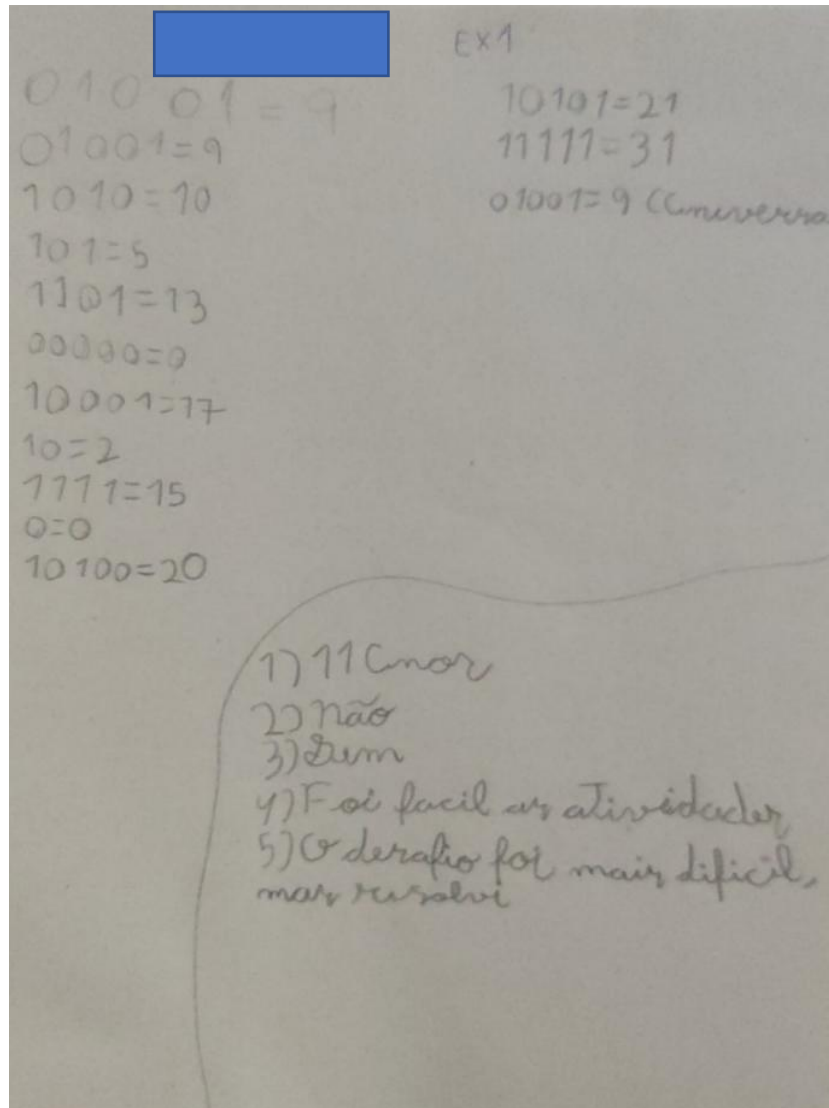 EX1
01001=9
01001=9
1010=10
101=5
1101=13
00000=0
10001=17
10=2
1111=15
0=0
10100=20
10101=21
11111=31
01001=9
1) 11 Anos
2) não
3) Sim
4) Foi facil as atividades
5) O desafio foi mais dificil,
mas resolvi